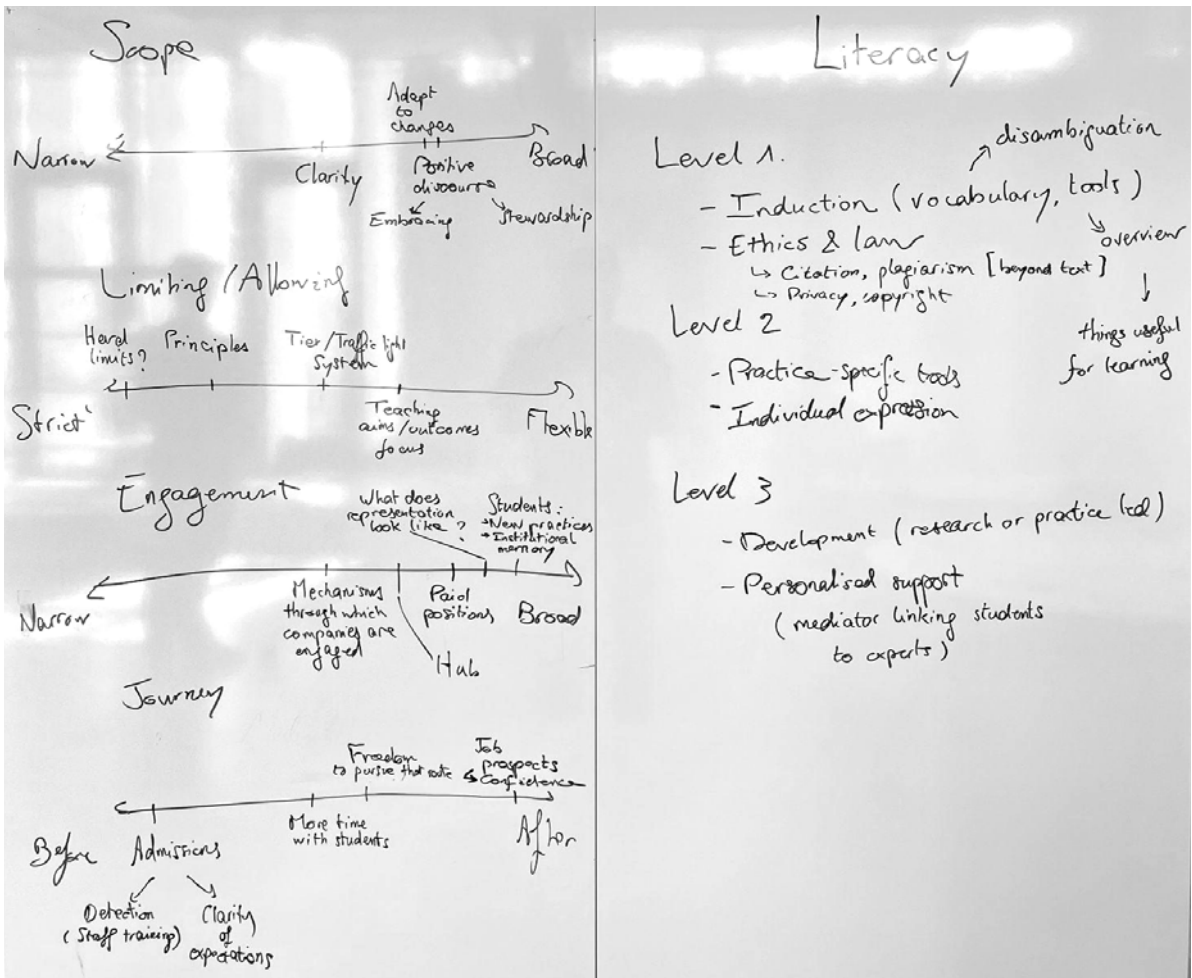 Scope
Adapt
to
changes
Narrow
Broad
Clarity
Positive
discourse
Embracing
Stewardship
Limiting / Allowing
Hard
limits?
Principles
Tier/Traffic light
System
Strict
Flexible
Teaching
aims/outcomes
focus
Engagement
What does
representation
look like?
Students:
→ New practices
→ Institutional
memory
Narrow
Mechanisms
through which
companies are
engaged
Hub
Paid
positions
Broad
Journey
Freedom
to pursue that route
Job
prospects
↳ Confidence
Before
Admissions
More time
with students
After
Detection
(Staff training)
Clarity
of
expectations
Literacy
disambiguation
Level 1.
- Induction (vocabulary, tools)
overview
- Ethics & law
↳ Citation, plagiarism [beyond text]
↳ Privacy, copyright
things useful
for learning
Level 2
- Practice-specific tools
- Individual expression
Level 3
- Development (research or practice led)
- Personalised support
(mediator linking students
to experts)